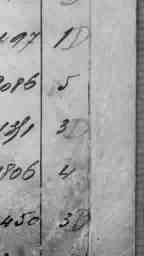 497 1D
3086 5
1351 3D
1806 4
450 3D